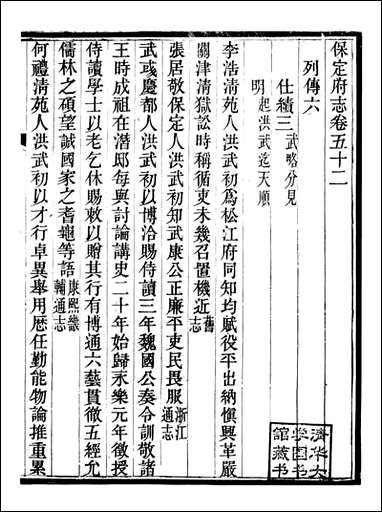 保定府志卷五十二
列傳六
仕績三 武略分見
明 起洪武迄天順
李浩淸苑人洪武初爲松江府同知均賦役平出納愼興革嚴
關津淸獄訟時稱循吏未幾召置機近 舊志
張居敬保定人洪武初知武康公正廉平吏民畏服 浙江通志
武彧慶都人洪武初以博洽賜侍讀三年魏國公奏令訓敎諸
王時成祖在潛邸每與討論講史二十年始歸永樂元年徵授
侍讀學士以老乞休賜敕以贈其行有博通六藝貫徹五經允
儒林之碩望誠國家之耆龜等語 康熙畿輔通志
何禮淸苑人洪武初以才行卓異舉用歷任勤能物論推重累
淸华大
学图书
館藏书